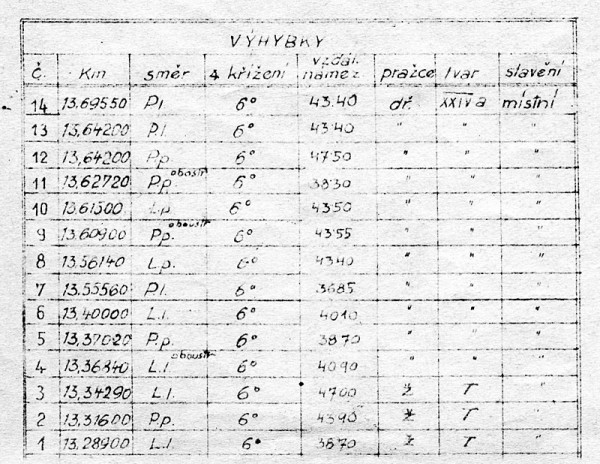 VÝHYBKY
Č. Km směr ∡ křížení vzdál. námez. pražce tvar stavění
14 13.69550 P.l. 6° 43.40 dř. XXIV a místní
13 13,64200 P.l. 6° 43.40 " " "
12 13,64200 P.p. 6° 47.50 " " "
11 13,62720 P.p. oboustr. 6° 38.30 " " "
10 13,61500 L.p. 6° 43.50 " " "
9 13.60900 P.p. oboustr. 6° 43.55 " " "
8 13.56140 L.p. 6° 43.40 " " "
7 13.55560 P.l. 6° 36.85 " " "
6 13,40000 L.l. 6° 40.10 " " "
5 13,37020 P.p. 6° 38.70 " " "
4 13,36840 L.l. oboustr. 6° 40.90 " " "
3 13,34290 L.l. 6° 47.00 ž T "
2 13,31600 P.p. 6° 43.90 ž T "
1 13,28900 L.l. 6° 38.70 ž T "